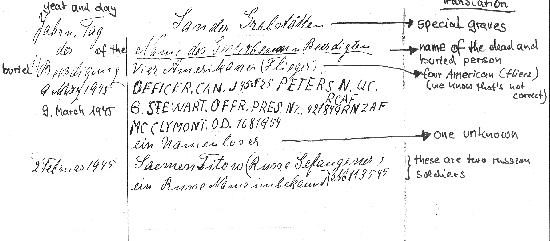 year and day translation
Jahr u. Tag Sander Grabstätten special graves
des of the Name des Verstorbenen Beerdigten name of the dead and buried person
buried Beerdigung Vier Amerikaner (Flieger) four American (fliers)
9 März 1945 OFFICER.CAN. PETERS N. (we know that's not correct)
9. March 1945 G. STEWART. OFFR. PRES NZ. RCAF RNZAF
MC CLYMONT. O.D. 1681959
ein Namenloser one unknown
2 Februar 1945 Titow (Russe Gefangener) these are two russian
ein Russe Name unbekannt soldiers